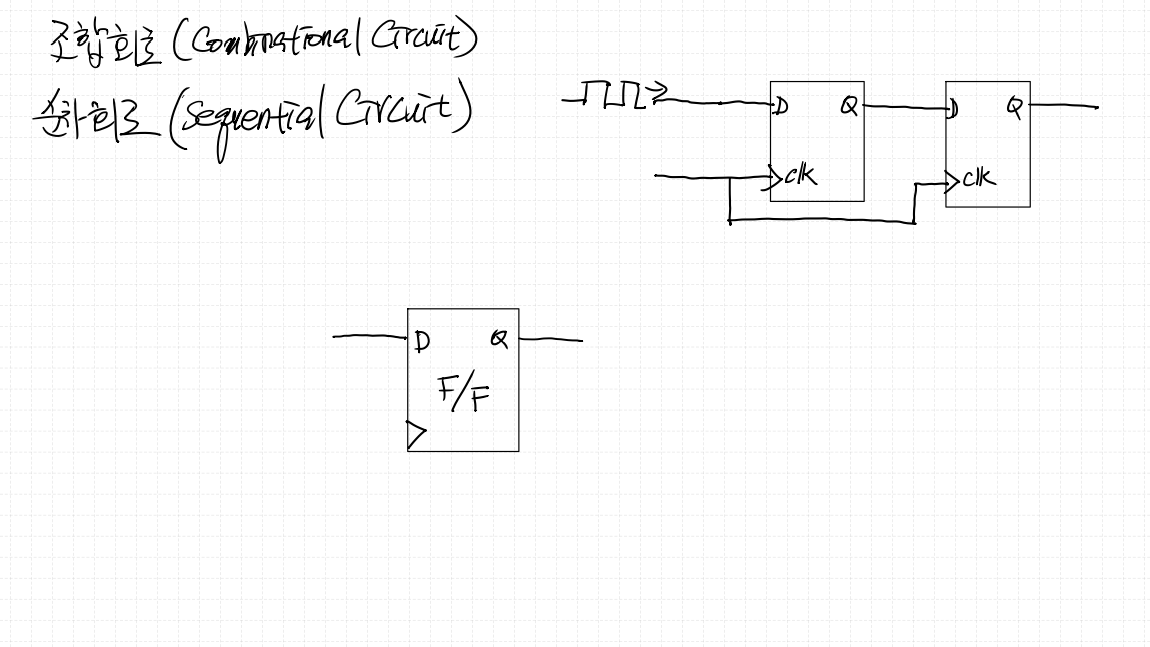 조합회로 (Combinational Circuit)
순차회로 (Sequential Circuit)
D Q D Q
clk clk
D Q
F/F